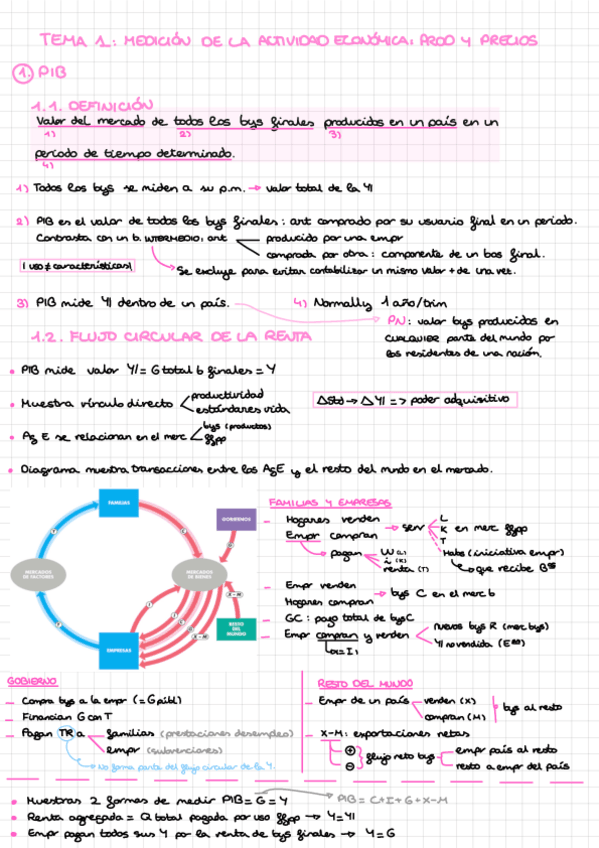 TEMA 1: MEDICIÓN DE LA ACTIVIDAD ECONÓMICA: PROD Y PRECIOS
1. PIB
1.1. DEFINICIÓN
Valor del mercado de todos los bys finales producidos en un país en un
1) 2) 3)
periodo de tiempo determinado.
4)
1) Todos los bys se miden a su p.m. → valor total de la YI
2) PIB es el valor de todos los bys finales: ant comprado por su usuario final en un periodo.
Contrasta con un b. INTERMEDIO: ant
producido por una empr
comprada por otra: componente de un bas final.
(uso ≠ características)
Se excluye para evitar contabilizar un mismo valor + de una vez.
3) PIB mide YI dentro de un país.
4) Normally 1 año/trim
PN: valor bys producidos en
CUALQUIER parte del mundo por
los residentes de una nación.
1.2. FLUJO CIRCULAR DE LA RENTA
• PIB mide valor YI = G total b finales = Y
• Muestra vínculo directo
productividad
estándares vida
ΔStd → ΔYI => poder adquisitivo
• Ag E se relacionan en el merc
bys (productos)
ffpp
• Diagrama muestra transacciones entre los AgE y el resto del mundo en el mercado.
FAMILIAS
GOBIERNOS
MERCADOS DE FACTORES
MERCADOS DE BIENES
RESTO DEL MUNDO
EMPRESAS
Y
C
G
X – M
I
C
G
X – M
Y
FAMILIAS Y EMPRESAS
– Hogares venden
Empr compran
→ serv
L
K
T
en merc ffpp
Habs (iniciativa empr)
que recibe Bºs
pagan
W (L)
i (K)
renta (T)
– Empr venden
Hogares compran
→ bys C en el merc b
– GC: pago total de bysC
– Empr compran y venden
nuevos bys R (merc bys)
YI no vendida (Eˣˣ)
(a = I)
GOBIERNO
– Compra bys a la empr (= G públ)
– Financian G con T
– Pagan TR a
familias (prestaciones desempleo)
empr (subvenciones)
No forma parte del flujo circular de la Y.
RESTO DEL MUNDO
– Empr de un país
venden (X)
compran (M)
bys al resto
– X-M: exportaciones netas
⊕
⊖
flujo neto bys
empr país al resto
resto a empr del país
• Muestras 2 formas de medir PIB = G = Y
PIB = C+I+G+X-M
• Renta agregada = Q total pagada por uso ffpp → Y=YI
• Empr pagan todos sus Y por la renta de bys finales → Y=G